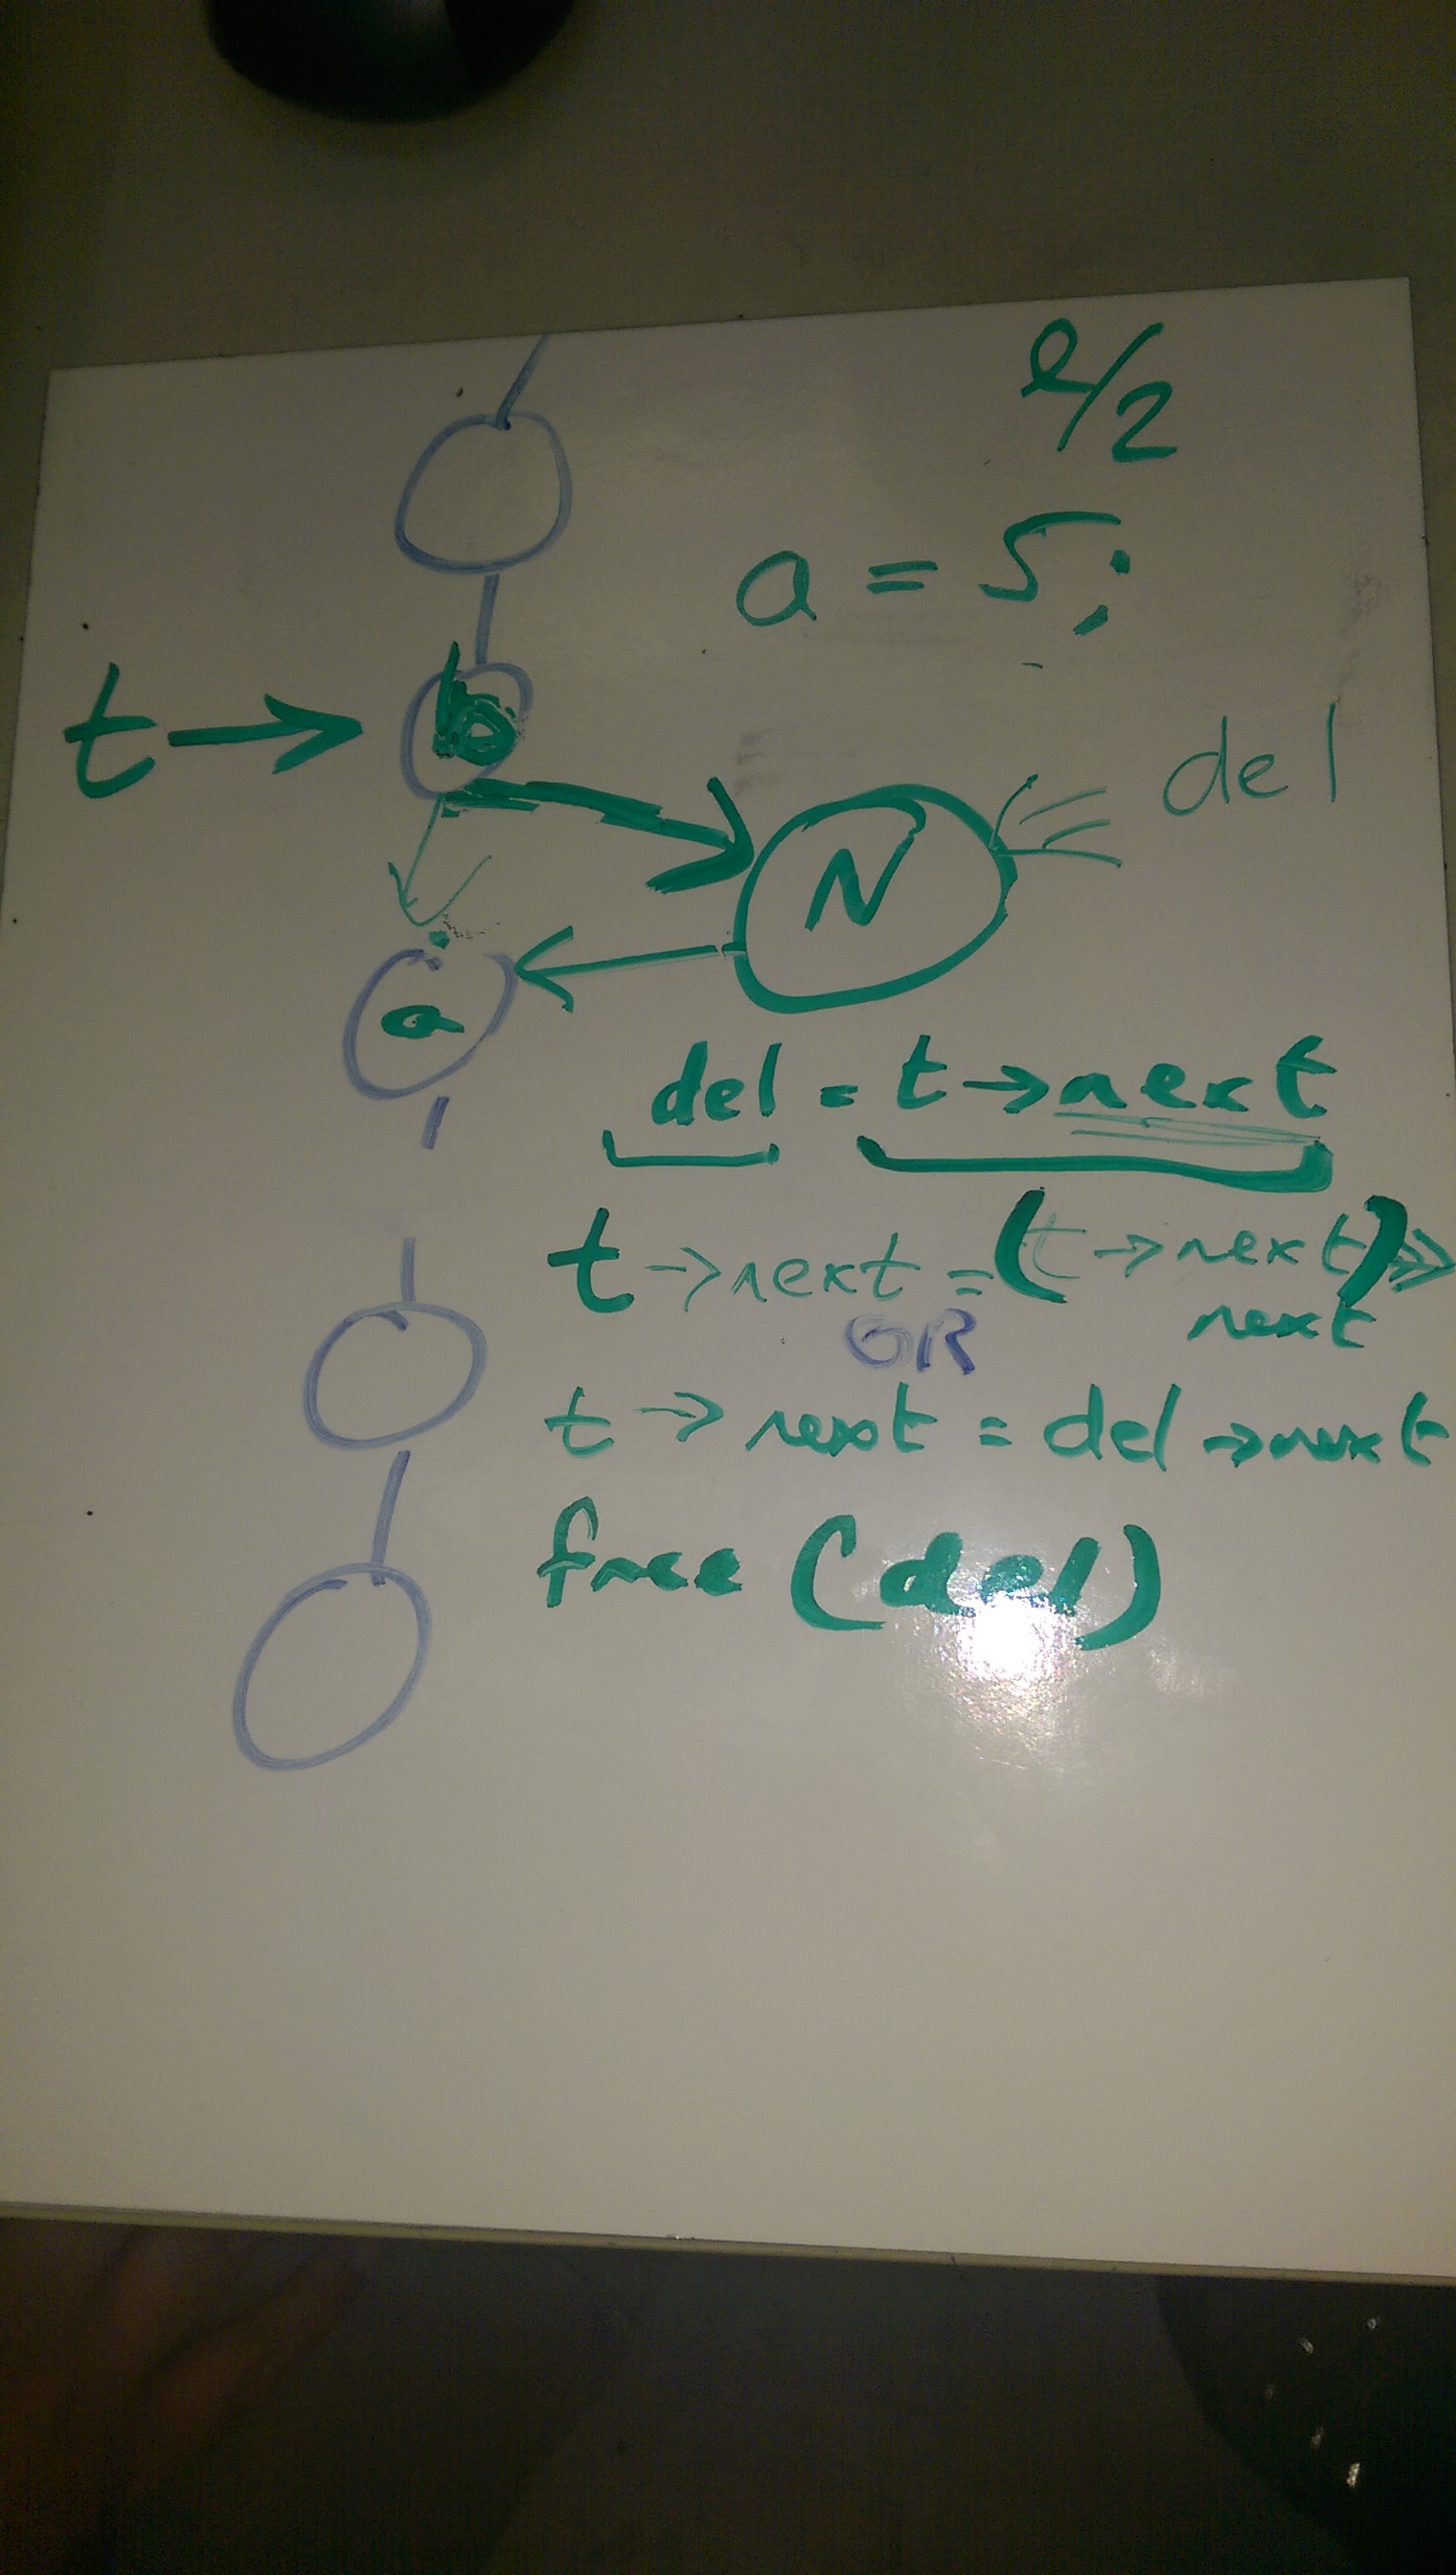 l/2
a = 5;
t →
b
del
N
a
del = t→next
t→next = (t→next)→
next
OR
t → next = del →next
free (del)